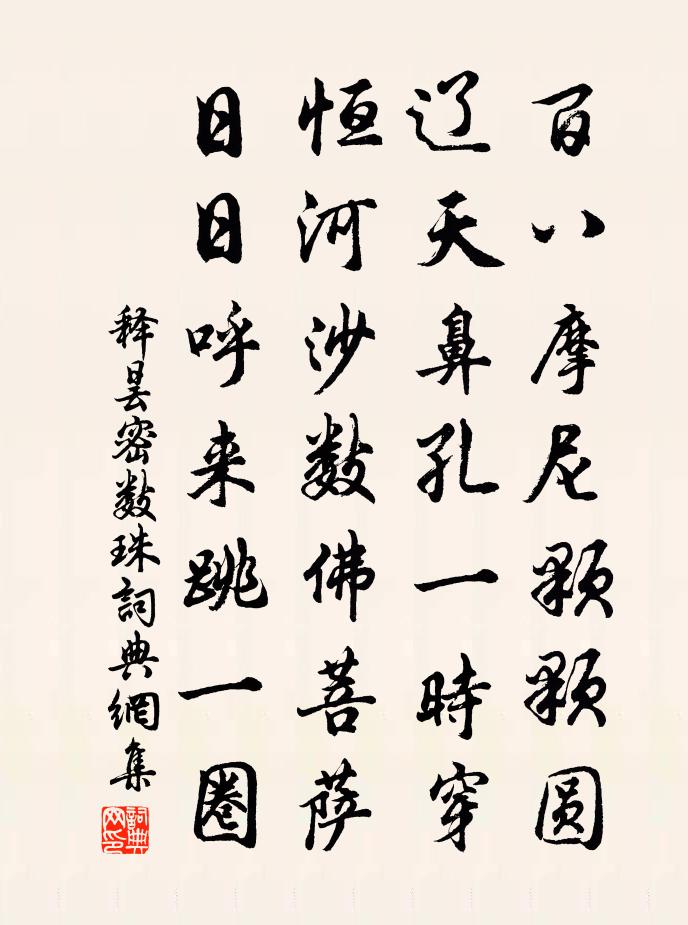 百八摩尼颗颗圆
辽天鼻孔一時穿
恒河沙数佛菩萨
日日呼来跳一圈
释昙密数珠詞典網集
詞典
网印